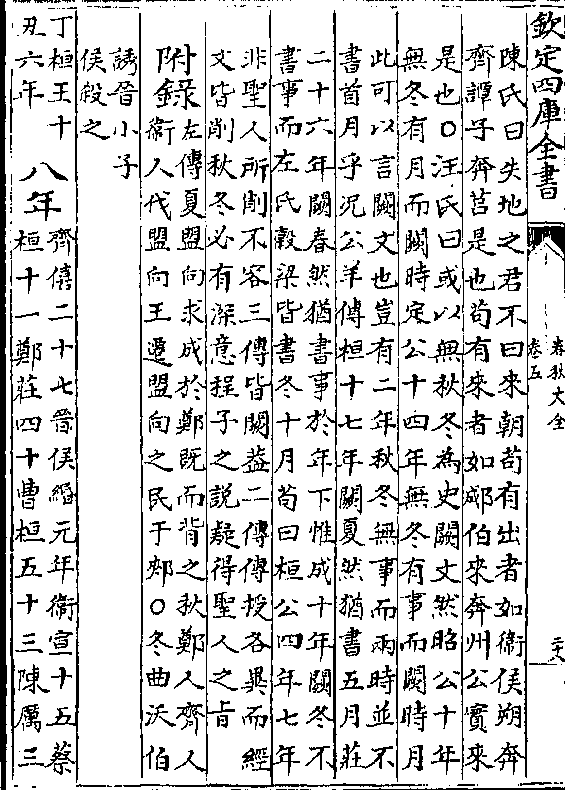 欽定四庫全書
春秋大全
卷五
陳氏曰失地之君不曰來朝苟有出者如衛侯朔奔
齊譚子奔莒是也苟有來者如郕伯來奔州公寔來
是也○汪氏曰或以無秋冬為史闕文然昭公十年
無冬有月而闕時定公十四年無冬有事而闕時月
此可以言闕文也豈有二年秋冬無事而兩時並不
書首月乎況公羊傳桓十七年闕夏然猶書五月莊
二十六年闕春然猶書事於年下惟成十年闕冬不
書事而左氏穀梁皆書冬十月苟曰桓公四年七年
非聖人所削不容三傳皆闕葢二傳傳授各異而經
文皆削秋冬必有深意程子之說疑得聖人之㫖
附錄
左傳夏盟向求成於鄭既而背之秋鄭人齊人
衛人伐盟向王遷盟向之民于郟○冬曲沃伯
誘晉小子
侯殺之
丁桓王十
丑六年
八年
齊僖二十七晉侯緡元年衛宣十五蔡
桓十一鄭莊四十曹桓五十三陳厲三